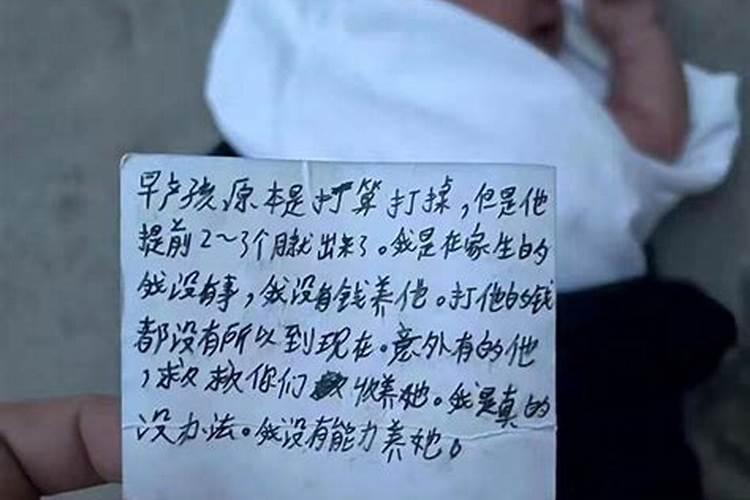 早产孩原本是打算打掉，但是他
提前2~3个月就出来了。我是在家生的
我没有事，我没有钱养他。打他的钱
都没有所以到现在。意外有的他
，求求你们收养她。我是真的
没办法。我没有能力养她。